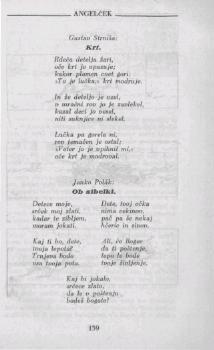 ANGELČEK
Gustav Strniša:
Krt.
Rdeča detelja žari,
oče krt jo opazuje;
kakor plamen cvet gori:
»To je lučka,« krt modruje.
In že deteljo je vzel,
v mračni rov jo je zavlekel,
kazal deci jo vesel,
niti suknjice ni slekel.
Lučka pa gorela ni,
rov temačen je ostal;
je modroval.
Janko Polák:
Ob zibelki.
Detece moje,
srček moj zlati,
kadar te zibljem,
moram jokati.
Kaj ti bo, dete,
tvoja lepota?
Trnjeva bode
vsa tvoja pota.
Dete, tvoj očka
nima cekinov,
pač pa še nekaj
hčerk in sinov.
Ali, če Bogec
da ti poštenje,
lepo bo bode
tvoje življenje.
Kaj bi jokalo,
srčece zlato,
da le v poštenju
bodeš bogato!
139